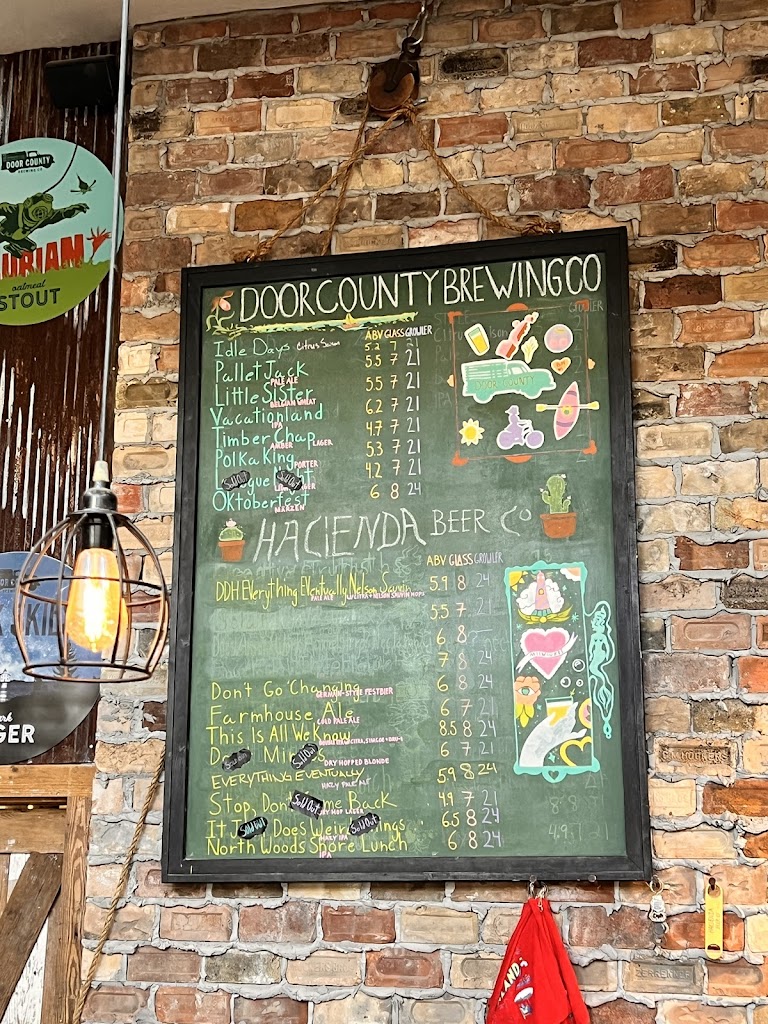 DOOR COUNTY
BREWING CO.
oatmeal
STOUT
DOOR COUNTY BREWING CO
ABV GLASS GROWLER
Idle Days Citrus Saison 5.2 7 21
Pallet Jack 5.5 7 21
PALE ALE
Little Sister 5.5 7 21
BELGIAN WHEAT
Vacationland 6.2 7 21
IPA
Timber Chap 4.7 7 21
AMBER LAGER
Polka King 5.3 7 21
PORTER
Sold Out Sold Out 4.2 7 21
LAGER
Oktoberfest 6 8 24
MARZEN
DOOR COUNTY
GROWLER
HACIENDA BEER CO
ABV GLASS GROWLER
DDH Everything Eventually Nelson Sauvin 5.9 8 24
PALE ALE W/ CITRA + NELSON SAUVIN HOPS
5.5 7 21
6 8
7 8 24
6 8 24
Don't Go Changing 6 7 21
GERMAN-STYLE FESTBIER
Farmhouse Ale 6 7 21
COLD PALE ALE
This Is All We Know 8.5 8 24
Sold Out 6 7 21
DRY HOPPED BLONDE
EVERYTHING EVENTUALLY 5.9 8 24
HAZY PALE ALE
Stop, Don't Sold Out Come Back 4.9 7 21
DRY HOP LAGER
It Sold Out Does Weird Sold Out Things 6.5 8 24
HAZY IPA
North Woods Shore Lunch 6 8 24
IPA